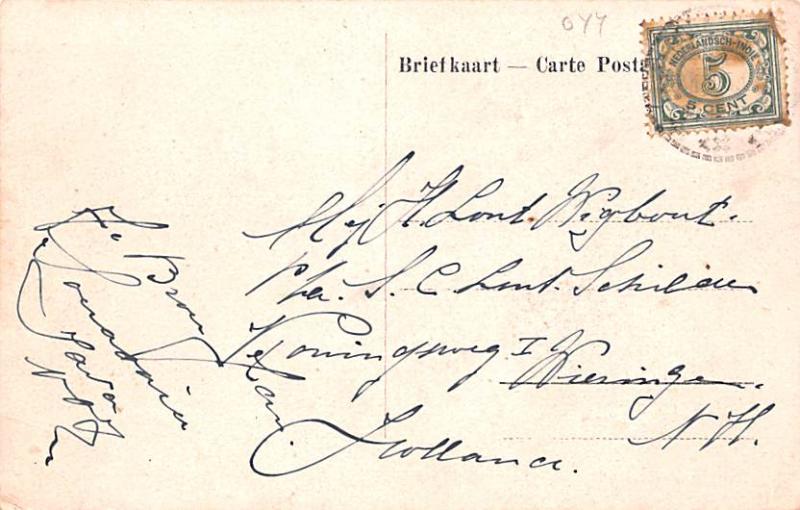 044
Briefkaart — Carte Posta
NEDERLANDSCH-INDIE
5
5 CENT
Mej H Lont. Wigbout.
p/a. S. C Lont. Schilder
Koningsweg I
Wieringen.
N. H.
Holland.
Soerabaia
Java